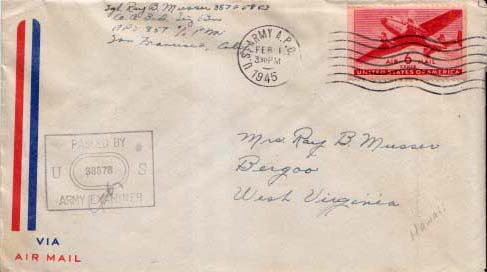 Sgt Ray B. Musser
Co. A
A.P.O. 357 c/o P.M.
San Francisco, Calif
U.S. ARMY A.P.O.
FEB
330PM
1945
AIR MAIL
6
CENTS
UNITED STATES OF AMERICA
PASSED BY
U S
ARMY EXAMINER
Mrs. Ray B Musser
Bergoo
West Virginia
Hawaii
VIA
AIR MAIL